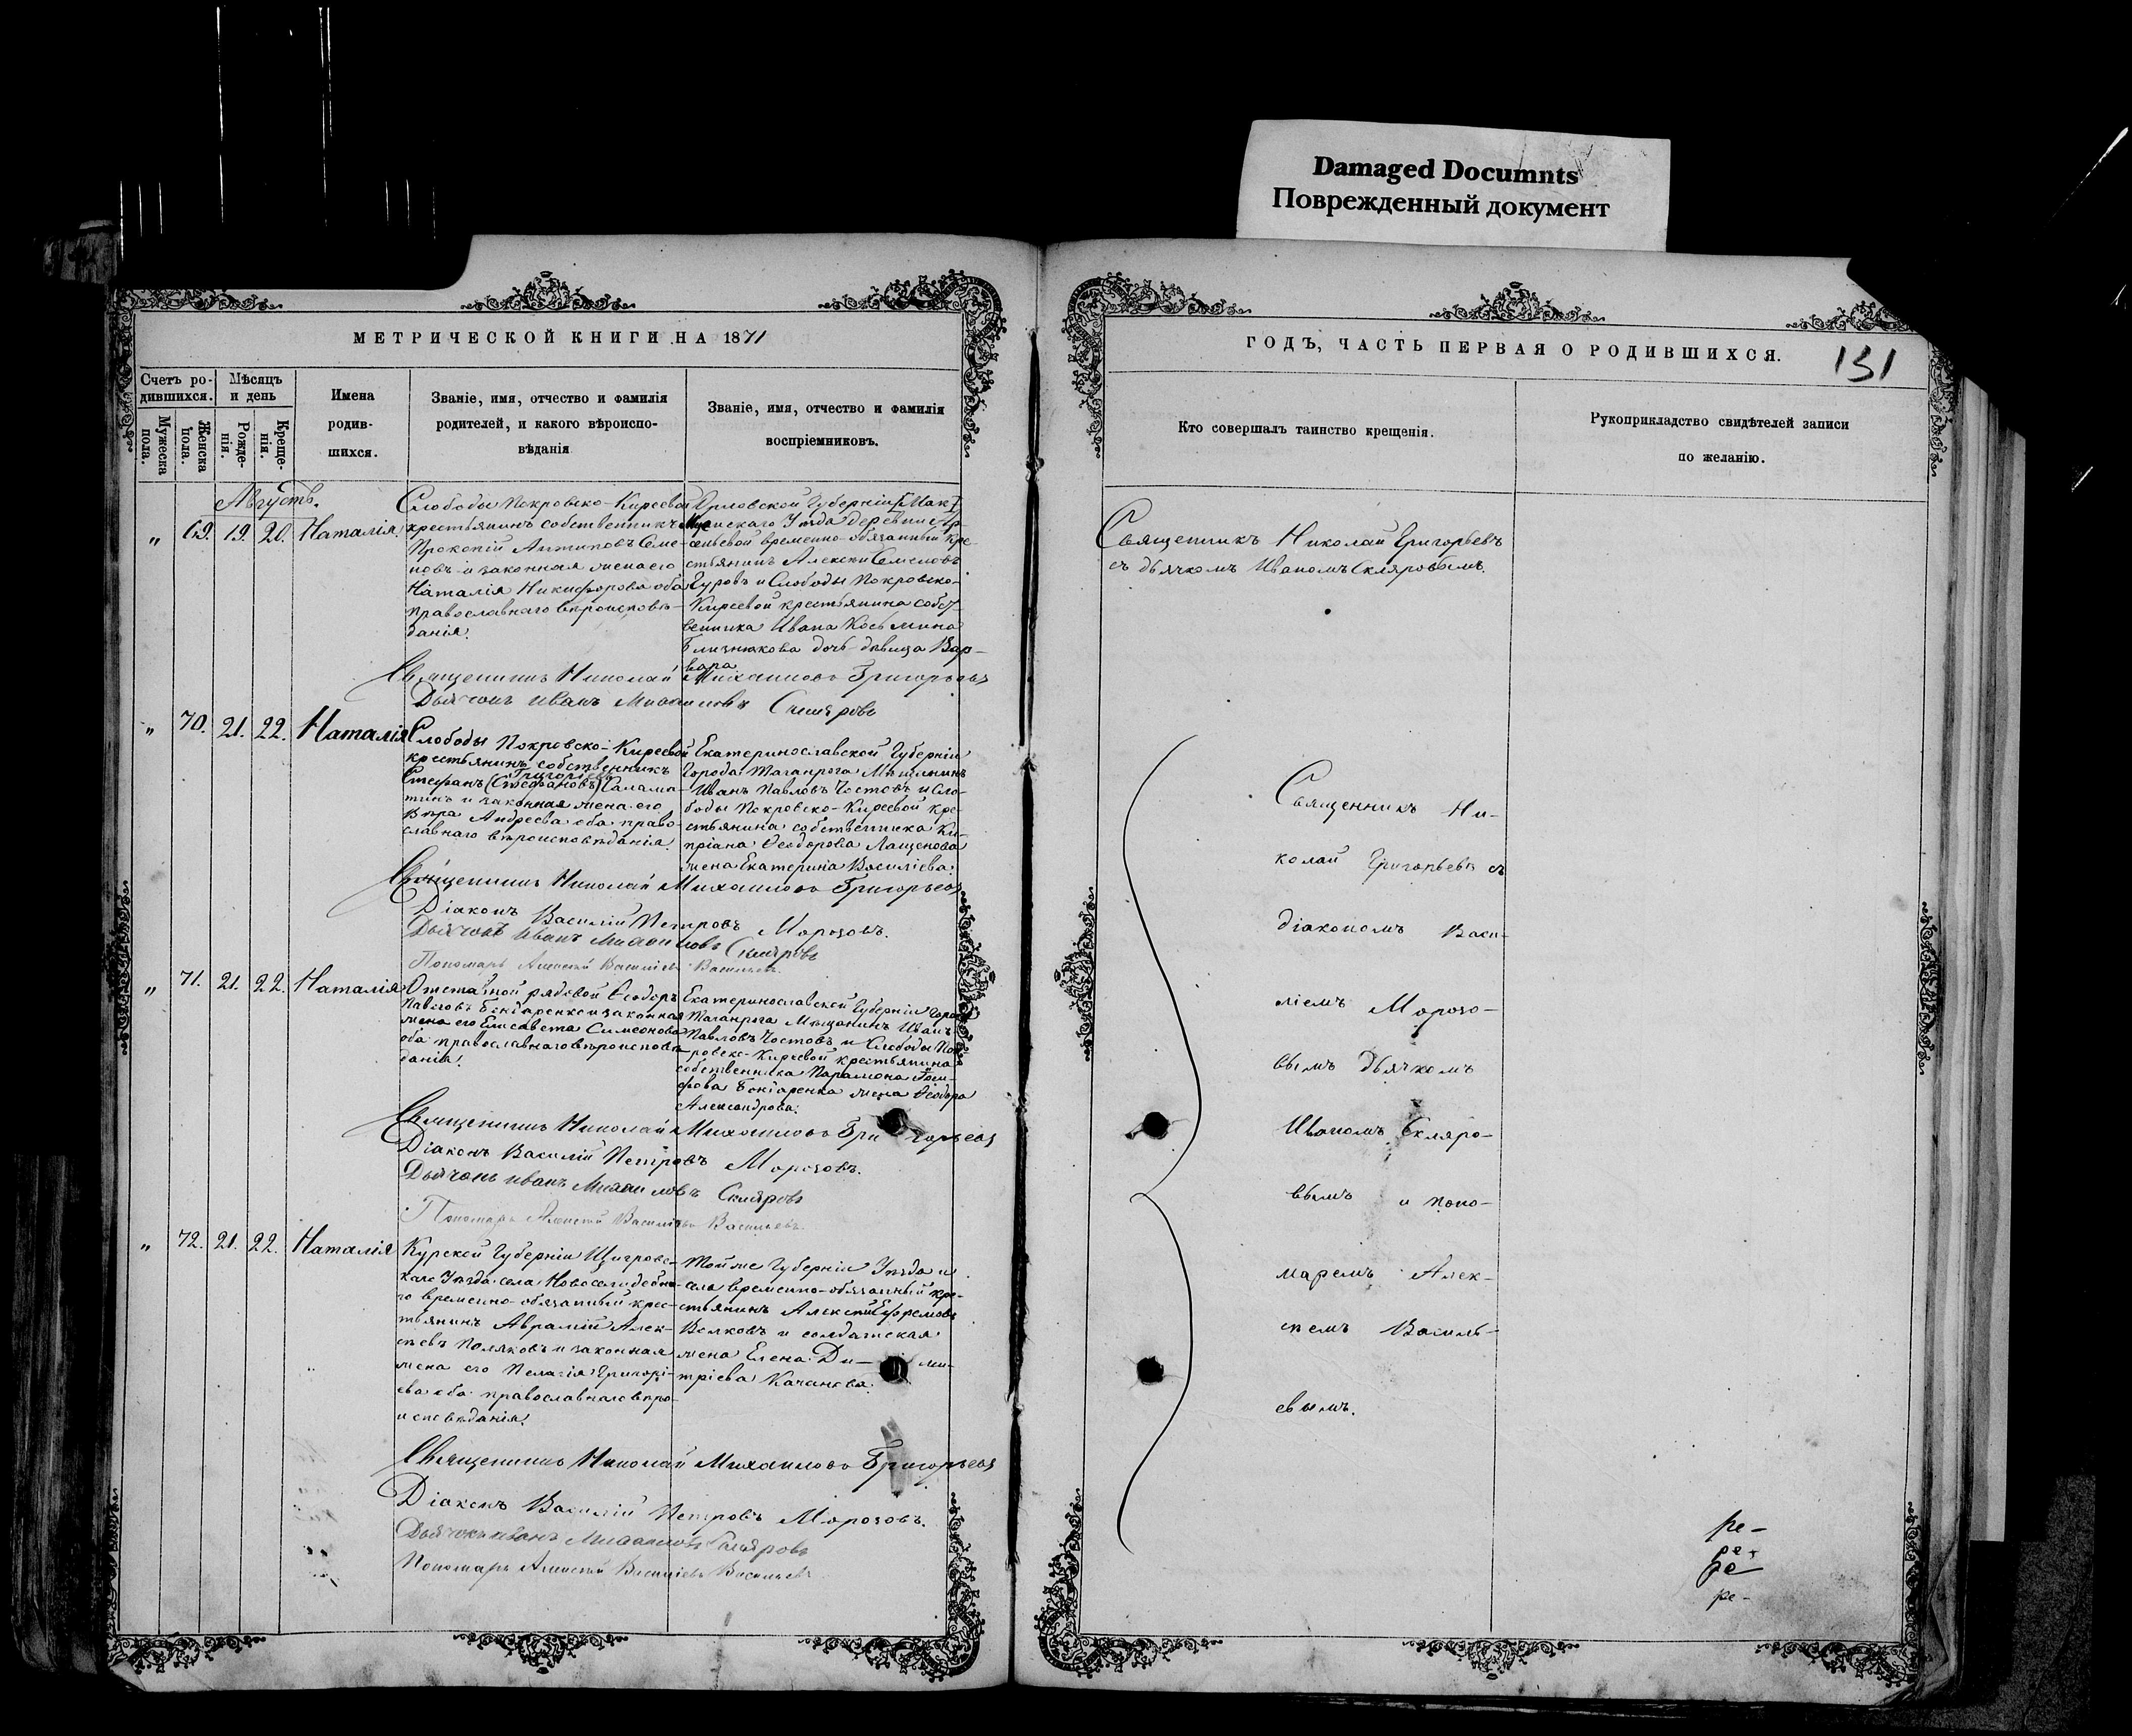 Damaged Documnts
Поврежденный документ
МЕТРИЧЕСКОЙ КНИГИ НА 1871
ГОДЪ, ЧАСТЬ ПЕРВАЯ О РОДИВШИХСЯ.
131
Счетъ ро-
дившихся.
Мужеска
пола.
Женска
пола.
Мѣсяцъ
и день
Рожде-
нія.
Креще-
нія.
Имена
родив-
шихся.
Званіе, имя, отчество и фамилія
родителей, и какого вѣроиспо-
вѣданія
Званіе, имя, отчество и фамилія
воспріемниковъ.
Кто совершалъ таинство крещенія.
Рукоприкладство свидѣтелей записи
по желанію.
Августъ.
„ 69. 19. 20. Наталія.
Слободы Покровско-Киреевой
крестьянинъ собственникъ
Прокопій Антиповъ Семе-
новъ и законная жена его
Наталія Никифорова оба
православнаго вѣроисповѣ-
данія.
Орловской Губерніи
Уѣзда деревни Ар-
сеньевой временно-обязанный кре-
стьянинъ Алексій Семеновъ
Гуровъ и Слободы Покровско-
Киреевой крестьянина собст-
венника Ивана Косьмина
Близнюкова дочь дѣвица Вар-
вара.
Священникъ Николай Григорьевъ
съ дьячкомъ Иваномъ Скляровымъ.
Священникъ Николай Михаиловъ Григорьевъ
Дьячокъ Иванъ Михаиловъ Скляровъ
„ 70. 21. 22. Наталія
Слободы Покровско-Киреевой
крестьянинъ собственникъ
Григоріевъ
Стефанъ (Стефановъ) Салама-
тинъ и законная жена его
Вѣра Андреева оба право-
славнаго вѣроисповѣданія.
Екатеринославской Губерніи
Города Таганрога Мѣщанинъ
Иванъ Павловъ Чостовъ и Сло-
боды Покровско-Киреевой кре-
стьянина собственника Ки-
пріана Ѳеодорова Лащенова
жена Екатерина Василіева.
Священникъ Николай Михаиловъ Григорьевъ
Діаконъ Василій Петровъ Морозовъ.
Дьячокъ Иванъ Михаиловъ Скляровъ
Пономарь Алексѣй Василіевъ Васильевъ.
„ 71. 21. 22. Наталія
Отставной рядовой Ѳеодоръ
Павловъ Бондаренко и законная
жена его Елисавета Симеонова
оба православнаго вѣроисповѣ-
данія.
Екатеринославской Губерніи Города
Таганрога Мѣщанинъ Иванъ
Павловъ Чостовъ и Слободы Пок-
ровско-Киреевой крестьянина
собственника Парамона Іоси-
фова Бондаренка жена Ѳеодора
Александрова.
Священникъ Николай Михаиловъ Григорьевъ
Діаконъ Василій Петровъ Морозовъ.
Дьячокъ Иванъ Михаиловъ Скляровъ
Пономарь Алексѣй Василіевъ Васильевъ.
„ 72. 21. 22. Наталія
Курской Губерніи Щигровс-
каго Уѣзда села
временно-обязанный крес-
тьянинъ Аврамій Алек-
сѣевъ Поляковъ и законная
жена его Пелагія Григорі-
ева оба православнаго вѣро-
исповѣданія.
Той же Губерніи Уѣзда и
села временно-обязанный кре-
стьянинъ Алексій Ефремовъ
Волковъ и солдатская
жена Елена Ди- ми-
тріева Качанова.
Священникъ Николай Михаиловъ Григорьевъ
Діаконъ Василій Петровъ Морозовъ.
Дьячокъ Иванъ Михаиловъ Скляровъ
Пономарь Алексѣй Василіевъ Васильевъ
Священникъ Ни-
колай Григорьевъ съ
діакономъ Васи-
ліемъ Морозо-
вымъ дьячкомъ
Иваномъ Скляро-
вымъ и поно-
маремъ Алек-
сѣемъ Василь-
евымъ.
ре-
ре-
ре
ре-